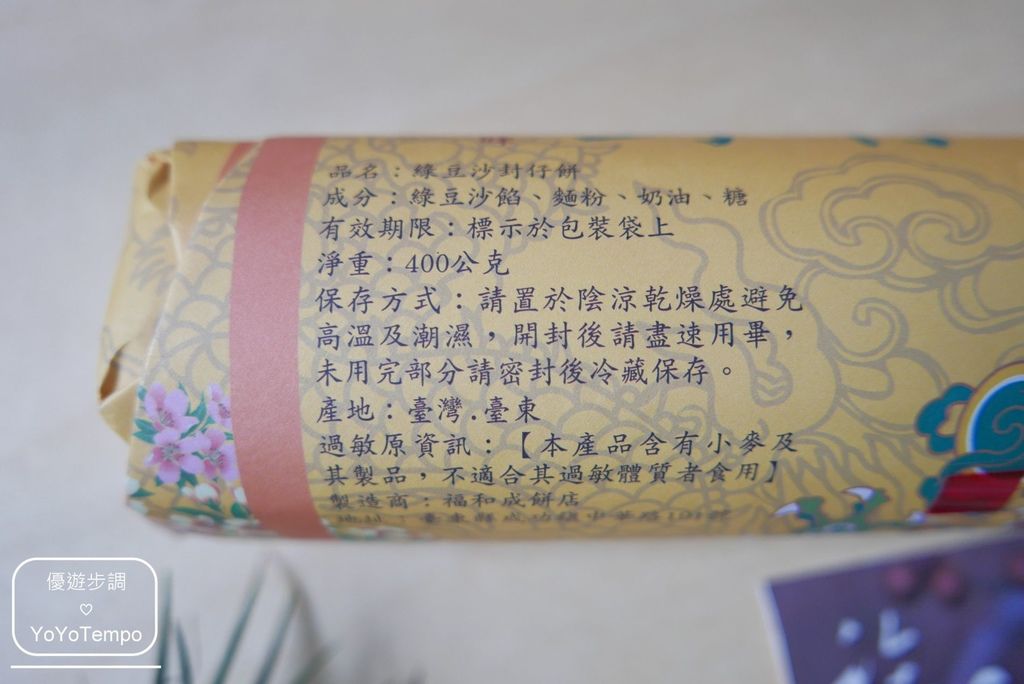 品名：綠豆沙封仔餅
成分：綠豆沙餡、麵粉、奶油、糖
有效期限：標示於包裝袋上
淨重：400公克
保存方式：請置於陰涼乾燥處避免
高溫及潮濕，開封後請盡速用畢，
未用完部分請密封後冷藏保存。
產地：臺灣.臺東
過敏原資訊：【本產品含有小麥及
其製品，不適合其過敏體質者食用】
製造商：福和成餅店
地址：臺東縣成功鎮中華路191號
優遊步調
YoYoTempo